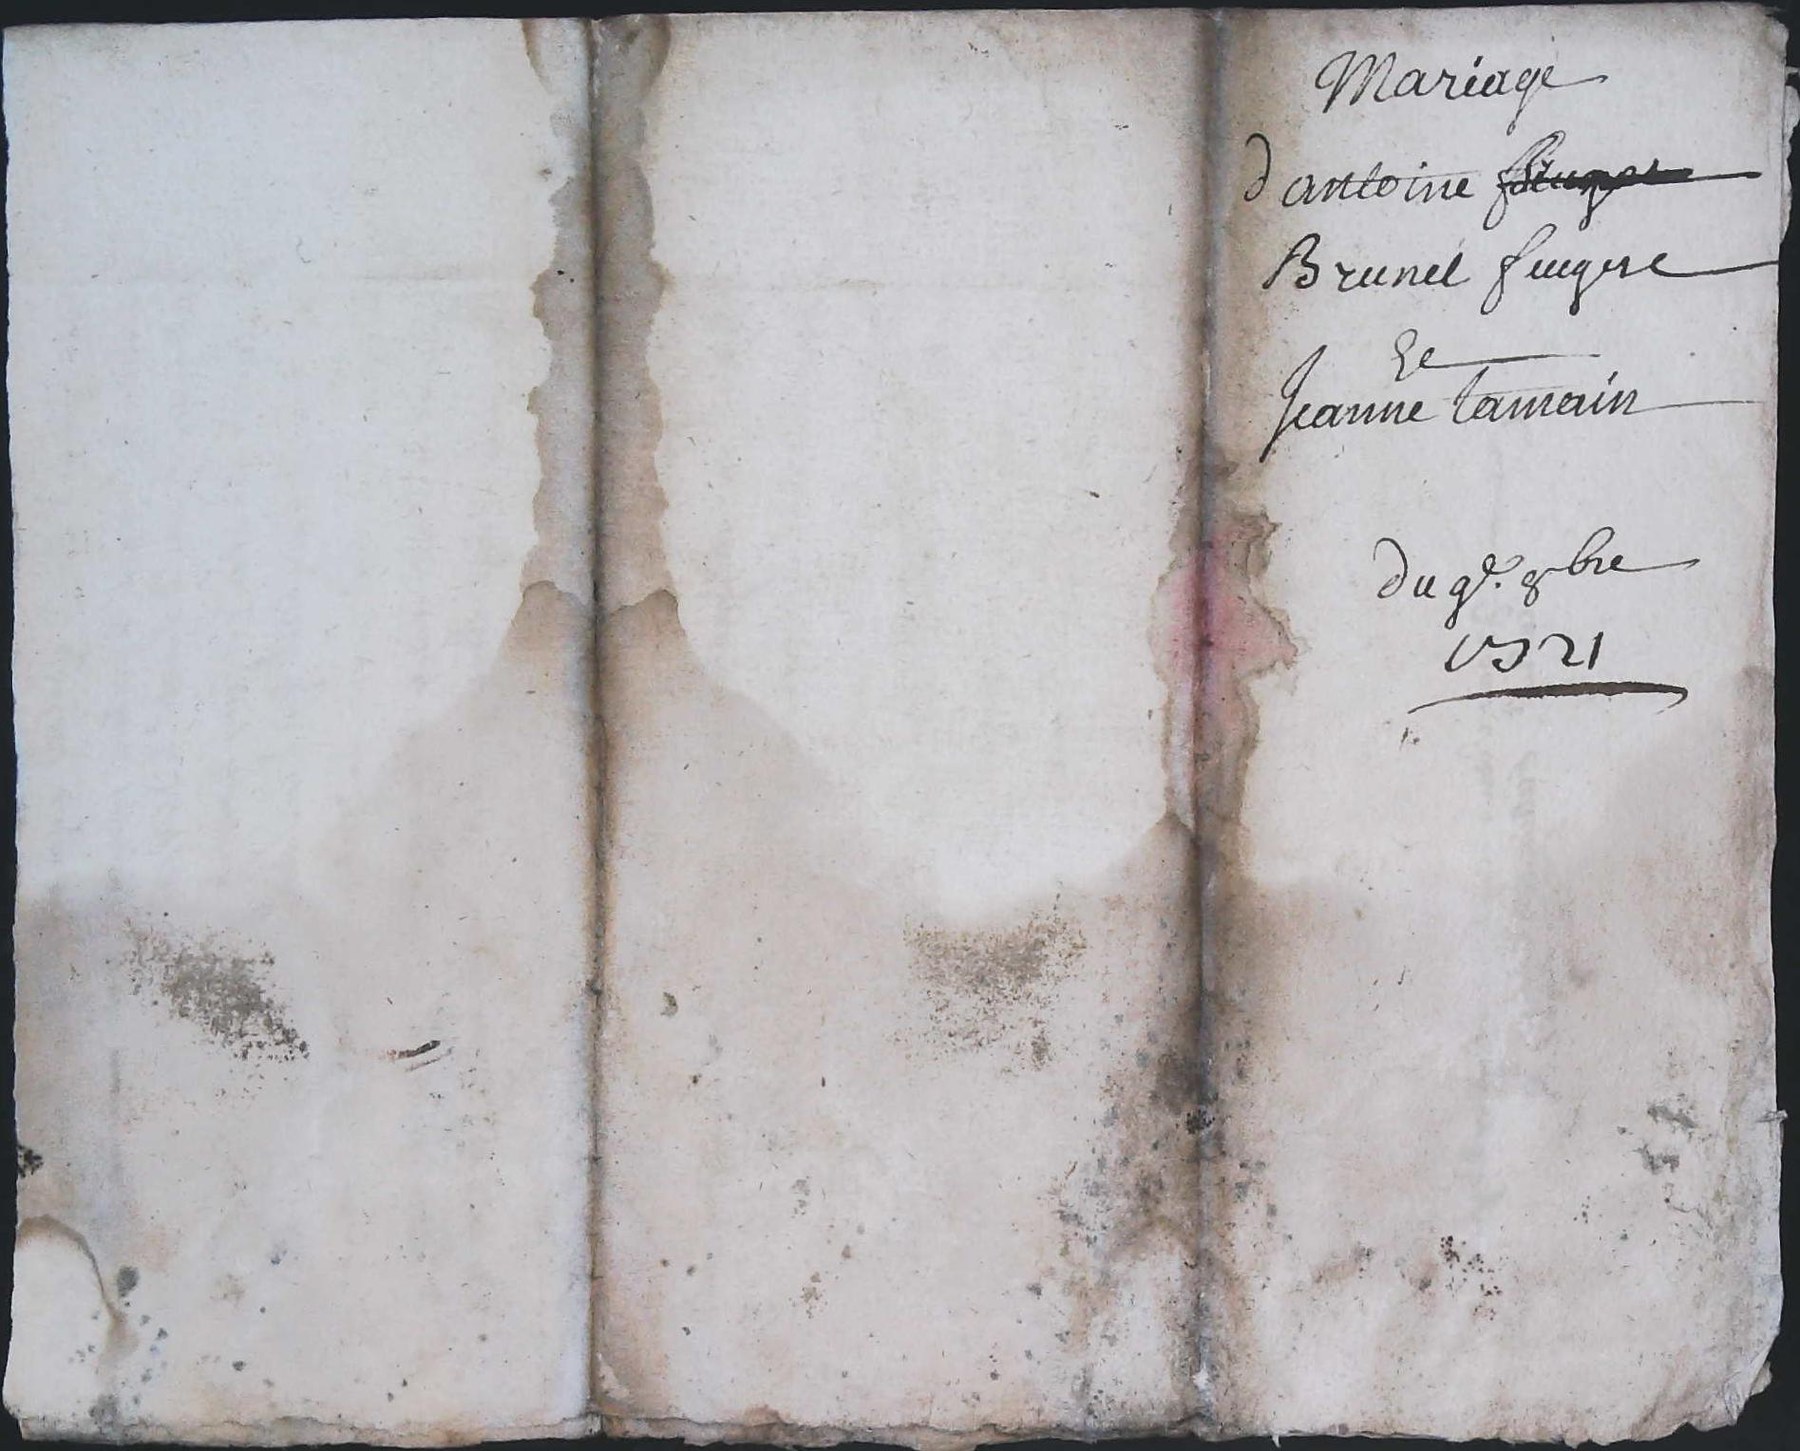 Mariage
d antoine
Brunel feugere
Et
Jeanne tamain
du 9e. 8bre
1721